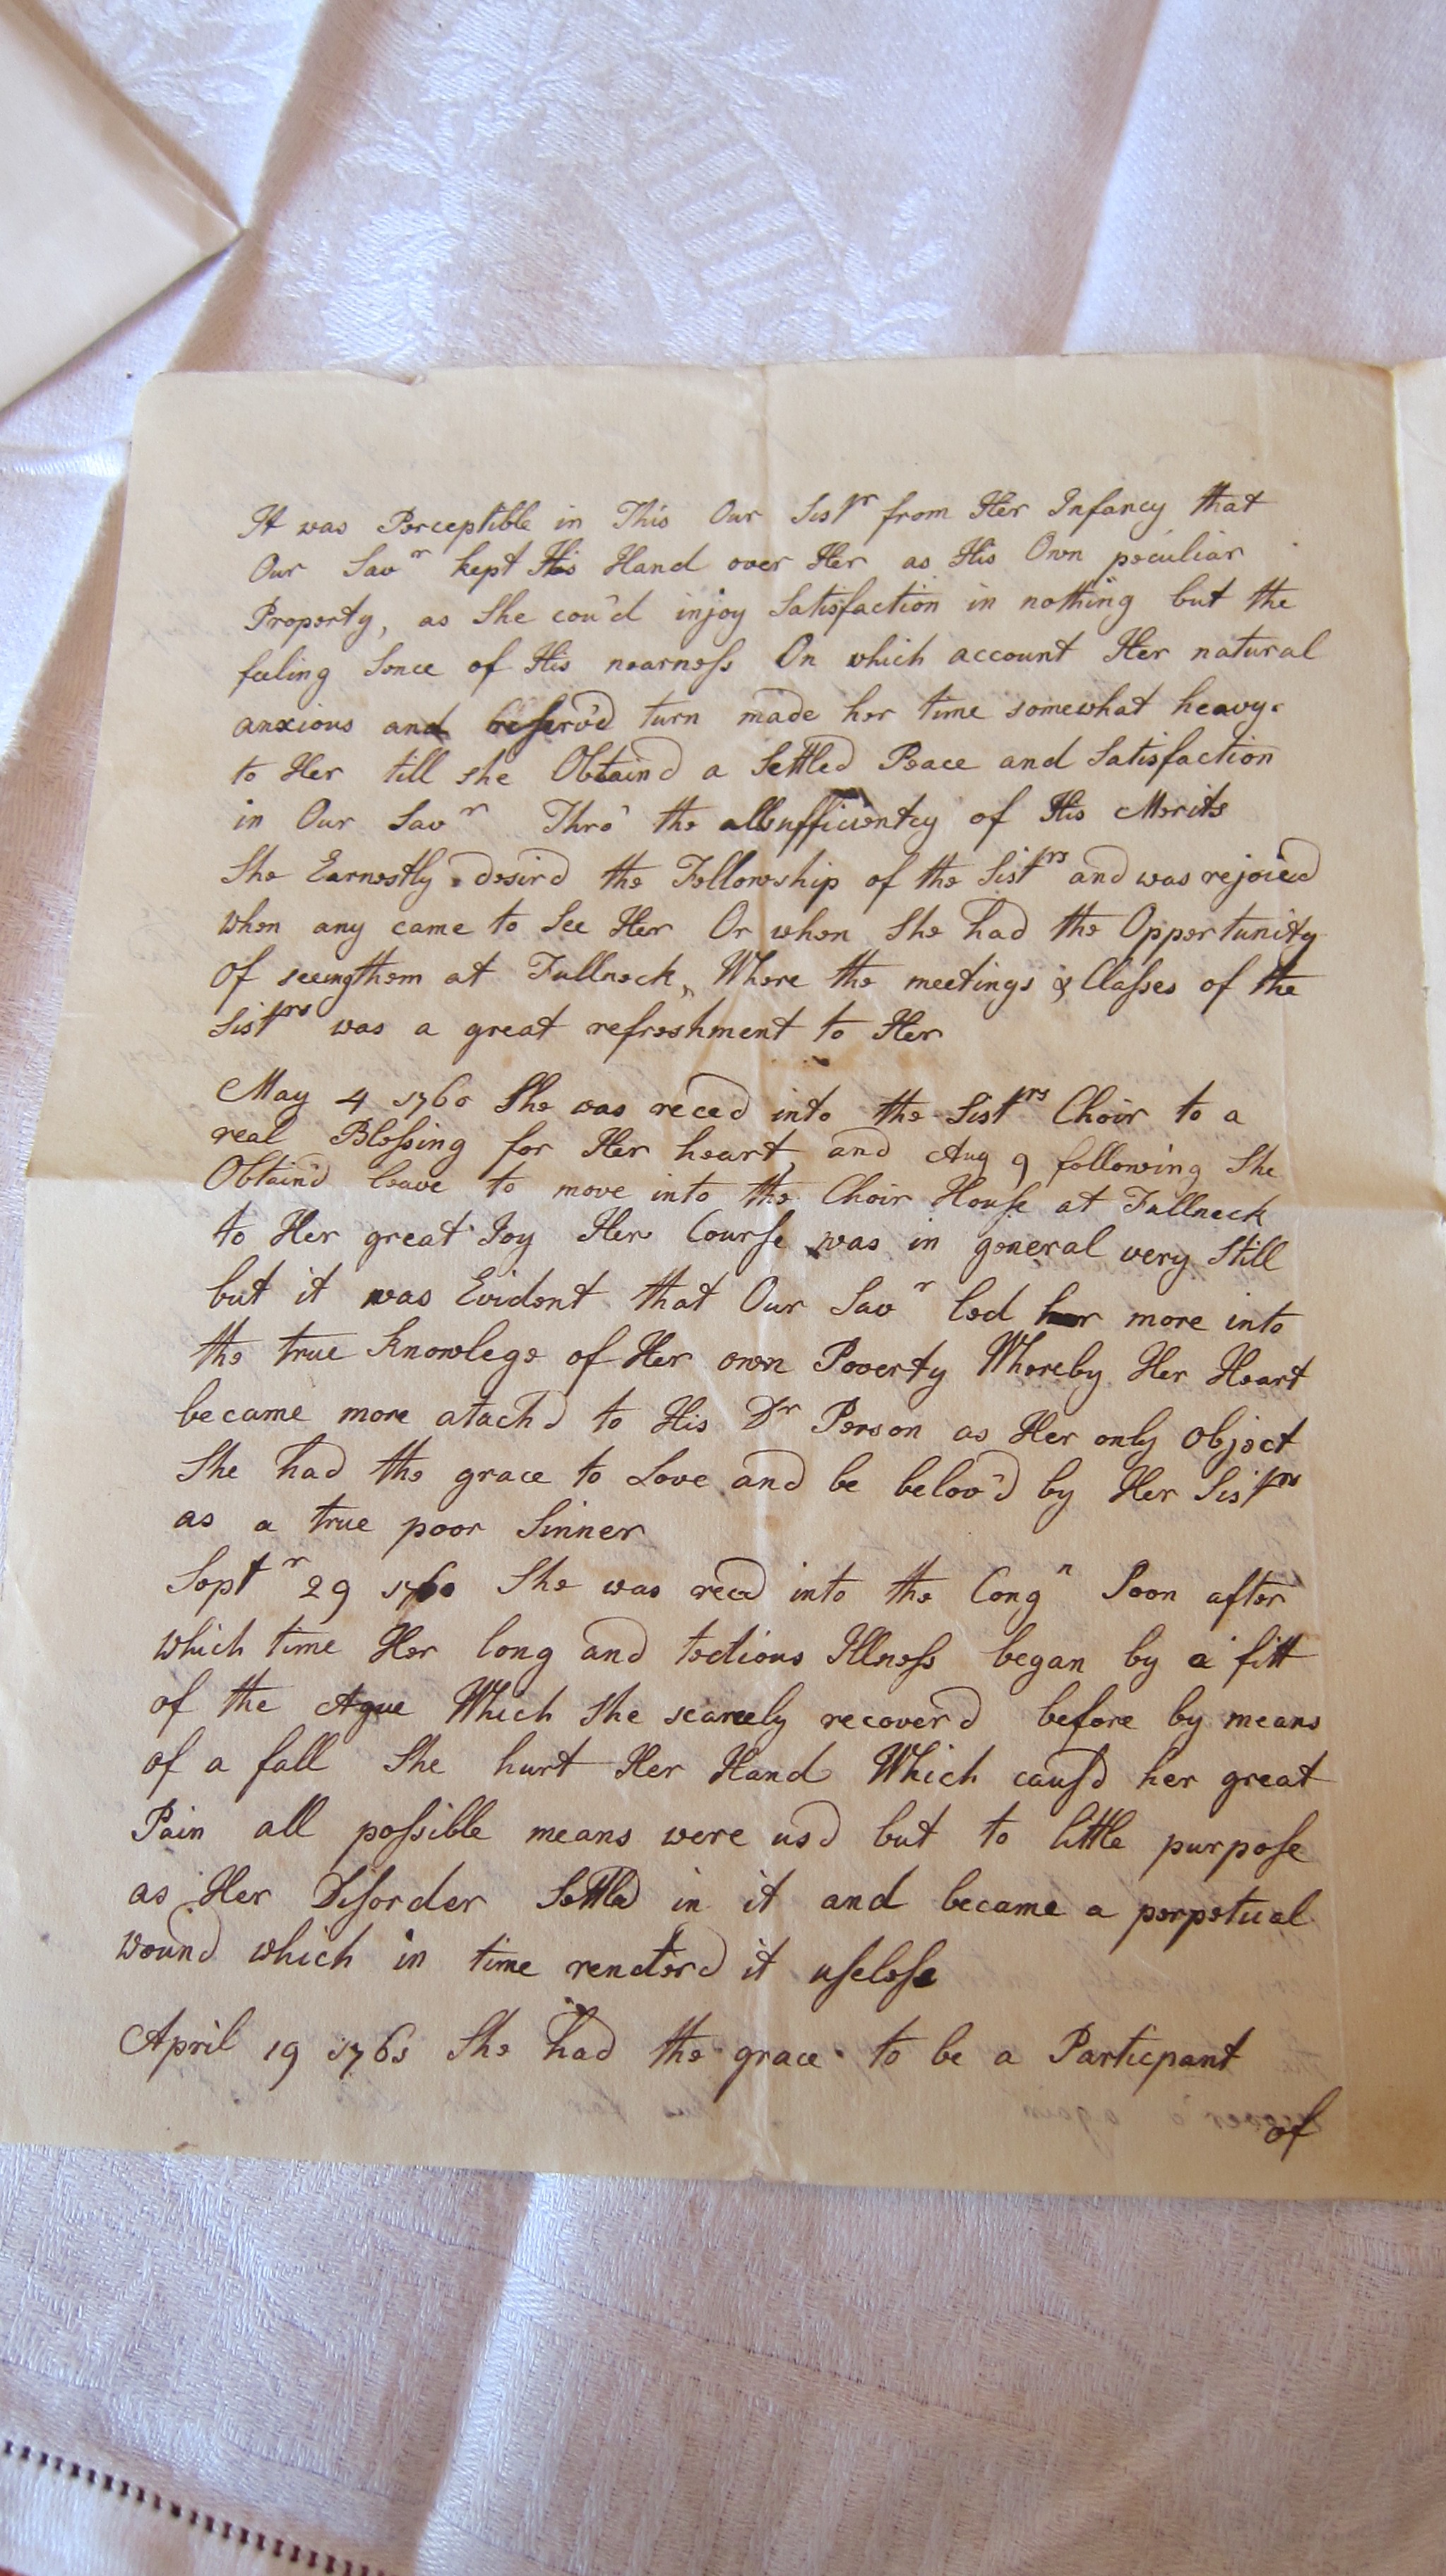 It was Perceptible in This Our Sistr from Her Infancy that
Our Savr kept His Hand over Her as His Own peculiar
Property, as She cou'd injoy Satisfaction in nothing but the
feeling Sence of His nearness On which account Her natural
anxious and reserv'd turn made her time somewhat heavy
to Her till she Obtaind a Settled Peace and Satisfaction
in Our Savr Thro' the allsufficientcy of His Merits
She Earnestly desir'd the Fellowship of the Sistrs and was rejoiced
when any came to See Her Or when She had the Opportunity
Of seeing them at Fullneck, Where the meetings & Classes of the
Sistrs was a great refreshment to Her
May 4 1760 She was reced into the Sistrs Choir to a
real Blessing for Her heart, and Aug 9 following She
Obtain'd leave to move into the Choir House at Fullneck
to Her great Joy Her Course was in general very Still
but it was Evident that Our Savr led her more into
the true Knowlege of Her own Poverty Whereby Her Heart
became more atach'd to His Dr Person as Her only Object
She had the grace to Love and be belov'd by Her Sistrs
as a true poor Sinner
Septr 29 1760 She was recd into the Congn Soon after
which time Her long and tedious Illness began by a fitt
of the Ague Which She scarcely recover'd before by means
of a fall She hurt Her Hand Which caus'd her great
Pain all possible means were us'd but to little purpose
as Her Disorder Settled in it and became a perpetual
wound which in time renderd it useless
April 19 1761 She had the grace to be a Particpant
of